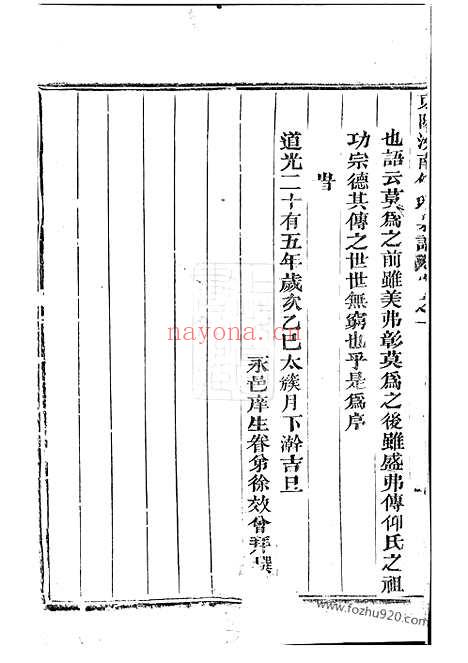 也語云莫爲之前雖美弗彰莫爲之後雖盛弗傳仰氏之祖
功宗德其傳之世世無窮也乎是爲序
時
道光二十有五年歲次乙巳太簇月下澣吉旦
永邑庠生眷弟徐效曾拜撰
nayona.cn
www.fozhu920.com